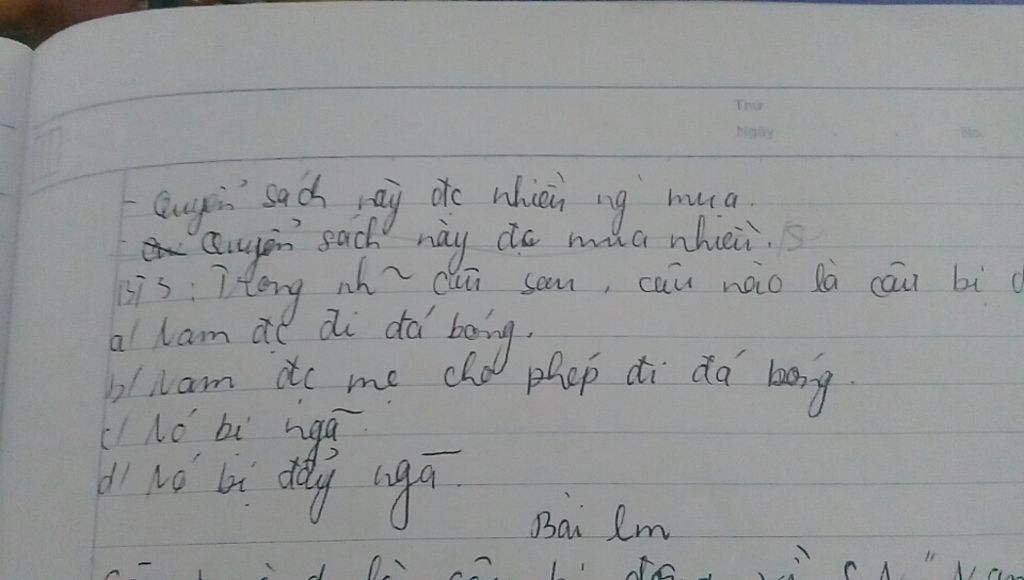 Thứ
Ngày No.
- Quyển sách này đc nhiều ng mua.
- Quyển sách này đc mua nhiều. S
BT3: Trong nh~ câu sau, câu nào là câu bị đ
a/ Nam đc đi đá bóng.
b/ Nam đc mẹ cho phép đi đá bóng.
c/ Nó bị ngã.
d/ Nó bị đẩy ngã.
Bài lm